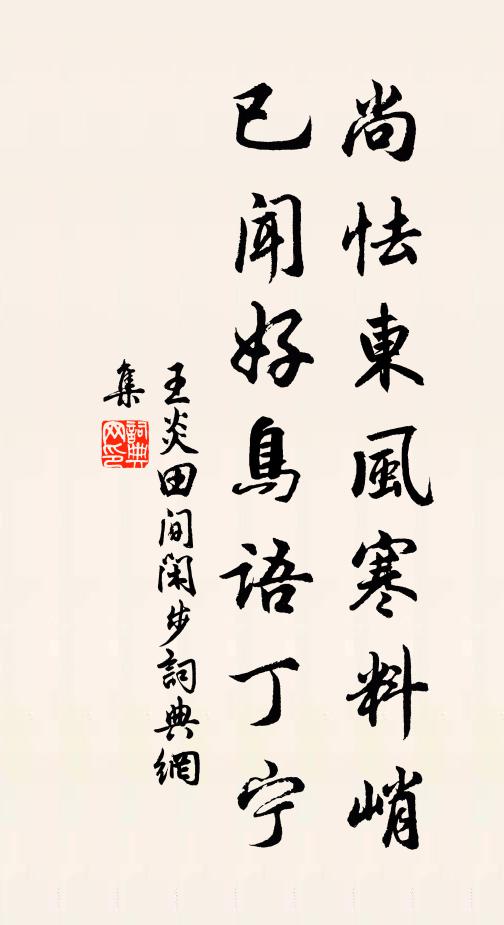 尚怯東風寒料峭
已聞好鳥語丁宁
王炎田間閑步詞典網
集
詞典
网印